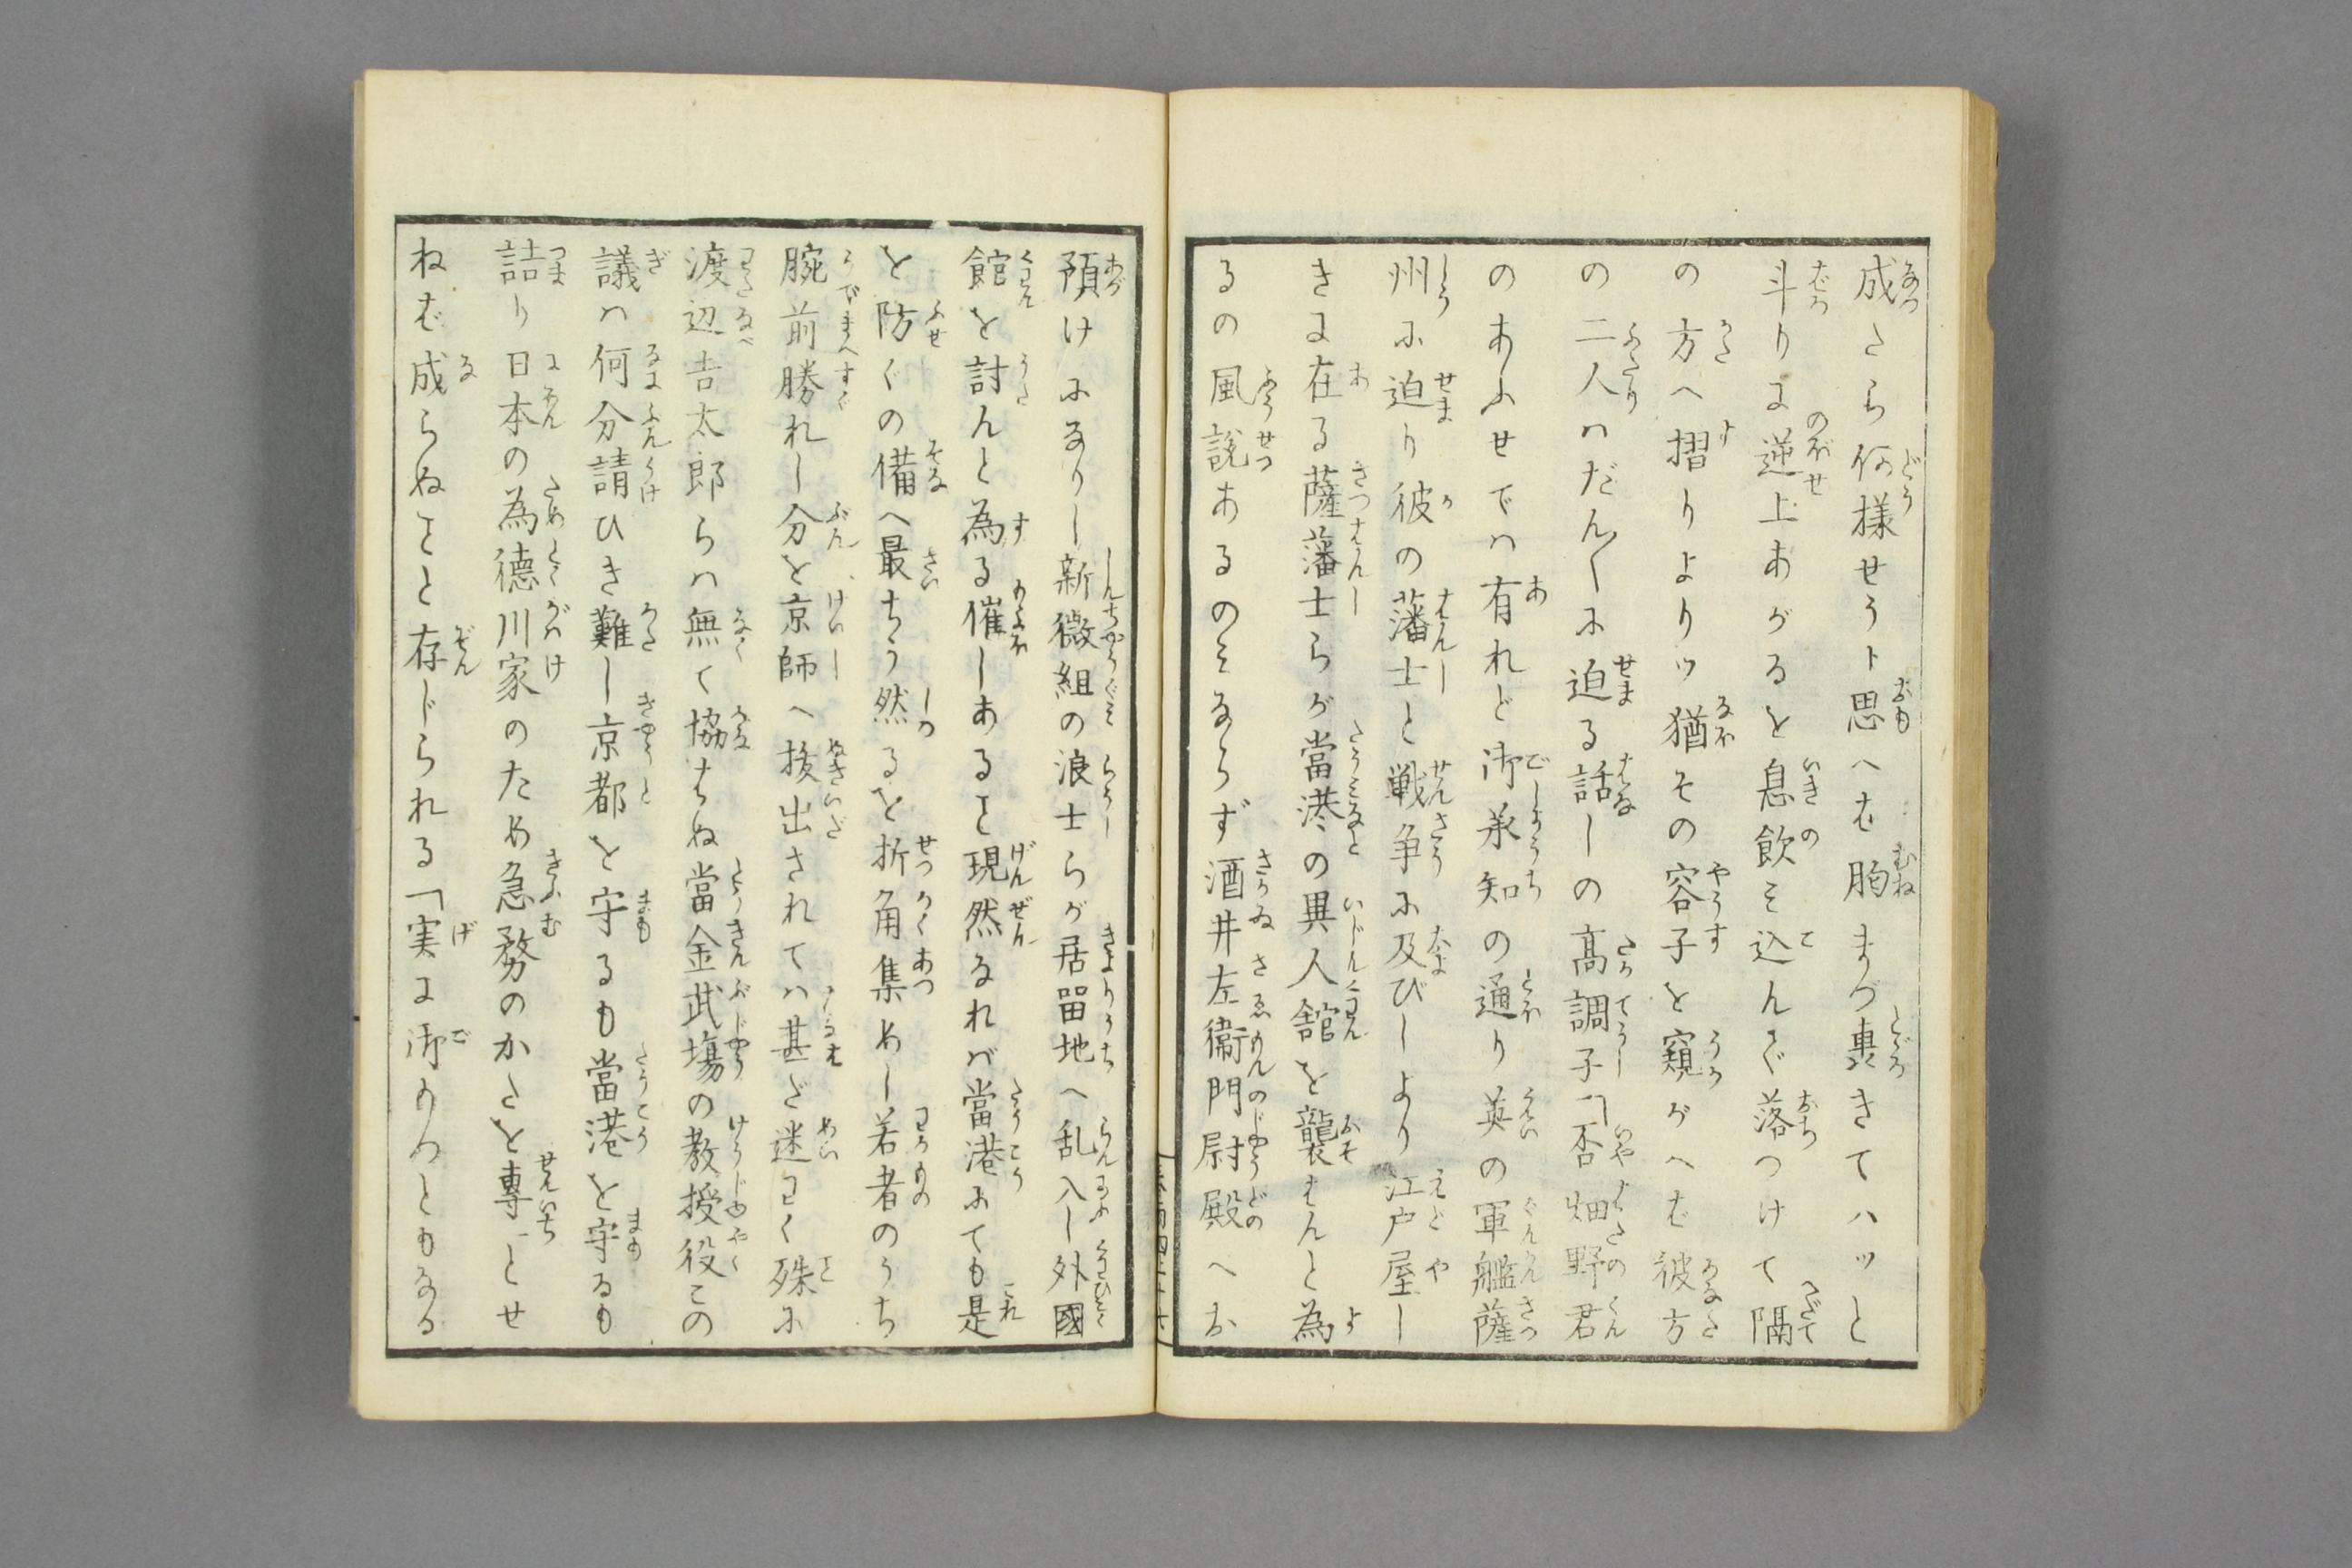 成たら何様せうト思へば胸まづ轟きてハッと
斗りに逆上あがるを息飲み込んで落つけて隔
の方へ摺りよりッ猶その容子を窺がへば彼方
の二人ハだん〱に迫る話しの高調子「否畑野君
のあふせでハ有れど御承知の通り英の軍艦薩
州に迫り彼の藩士と戦争に及びしより江戸屋し
きに在る薩藩士らが當港の異人舘を襲はんと為
るの風説あるのミならず酒井左衞門尉殿へお
預けになりし新微組の浪士らが居留地へ乱入し外國
館を討んと為る催しあること現然なれバ當港にても是
を防ぐの備へ最ちう然るを折角集めし若者のうち
腕前勝れし分を京師へ抜出されてハ甚だ迷わく殊に
渡辺吉太郎らハ無て協はぬ當金武場の教授役この
議ハ何分請ひき難し京都を守るも當港を守るも
詰り日本の為德川家のため急務のかたを專一とせ
ねば成らぬことと存じられる「実に御もつともなる